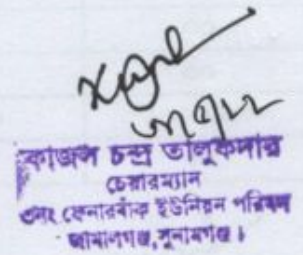 কাজল চন্দ্র তালুকদার
চেয়ারম্যান
৩নং ফেনারবাঁক ইউনিয়ন পরিষদ
জামালগঞ্জ, সুনামগঞ্জ।